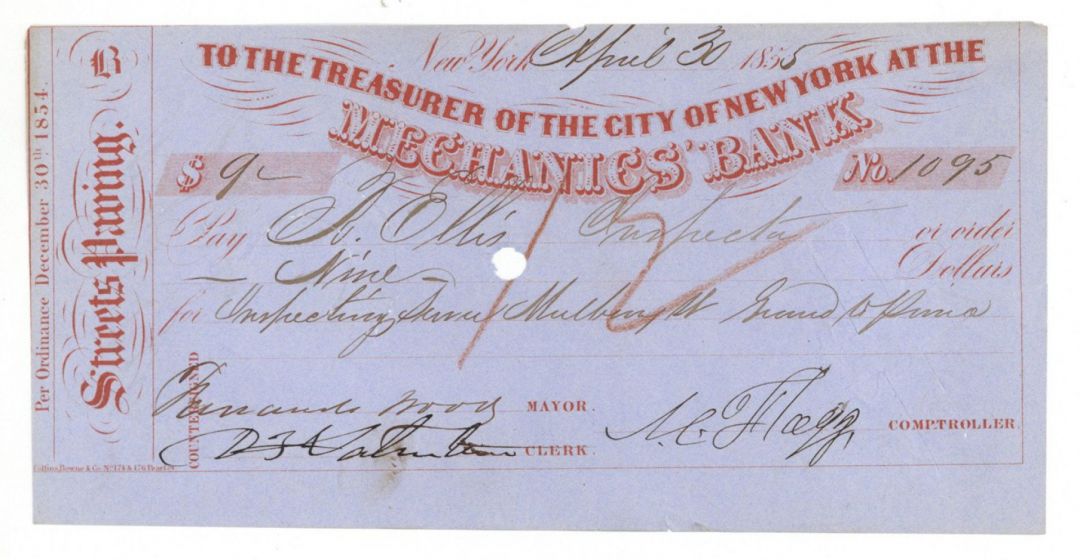 Per Ordinance December 30th 1854.
B
Streets Paving.
New York April 30 1855
TO THE TREASURER OF THE CITY OF NEW YORK AT THE
MECHANICS' BANK
$ 9- No. 1095
Pay Ellis Inspector or order
- Nine - Dollars
for Inspecting Sewer Mulberry St Grand to Prince
12
COUNTERSIGNED
Fernando Wood MAYOR.
D T Valentine CLERK.
A. C. Flagg COMPTROLLER.
Collins, Bowne & Co. No. 174 & 176 Pearl St.